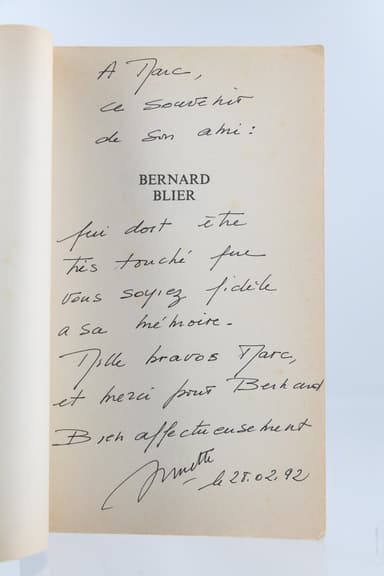 A Marc,
ce souvenir
de son ami :
BERNARD
BLIER
qui doit être
très touché que
vous soyiez fidèle
a sa mémoire.
Mille bravos Marc,
et merci pour Bernard
Bien affectueusement
Annette
le 28.02.92